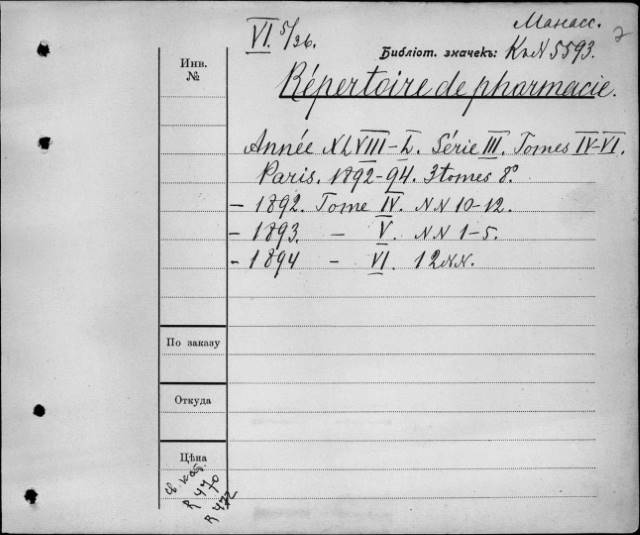 Манасс. 2
VI. 5/36.
Библіот. значекъ: К.N 5593.
Инв. №
Répertoire de pharmacie.
Année XLVIII-L. Série III. Tomes IV-VI.
Paris. 1892-94. 3 tomes 8°.
- 1892. Tome IV. NN 10-12.
- 1893. - V. NN 1-5.
- 1894 - VI. 12 NN.
По заказу
Откуда
Цѣна
R 470
R 472